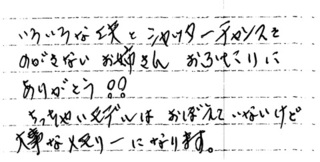 いろいろな人とシャッターチャンスを
のがさない お姉さん おろそこりに
ありがとう!!
ちっちゃいモデルは おぼえていないけど
大事なメモリーになります。